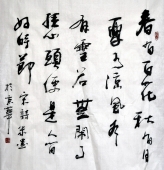 春有百花秋有月
夏有凉風冬
有雪若無閑事
挂心頭便是人間
好時節 宋詩
於京華